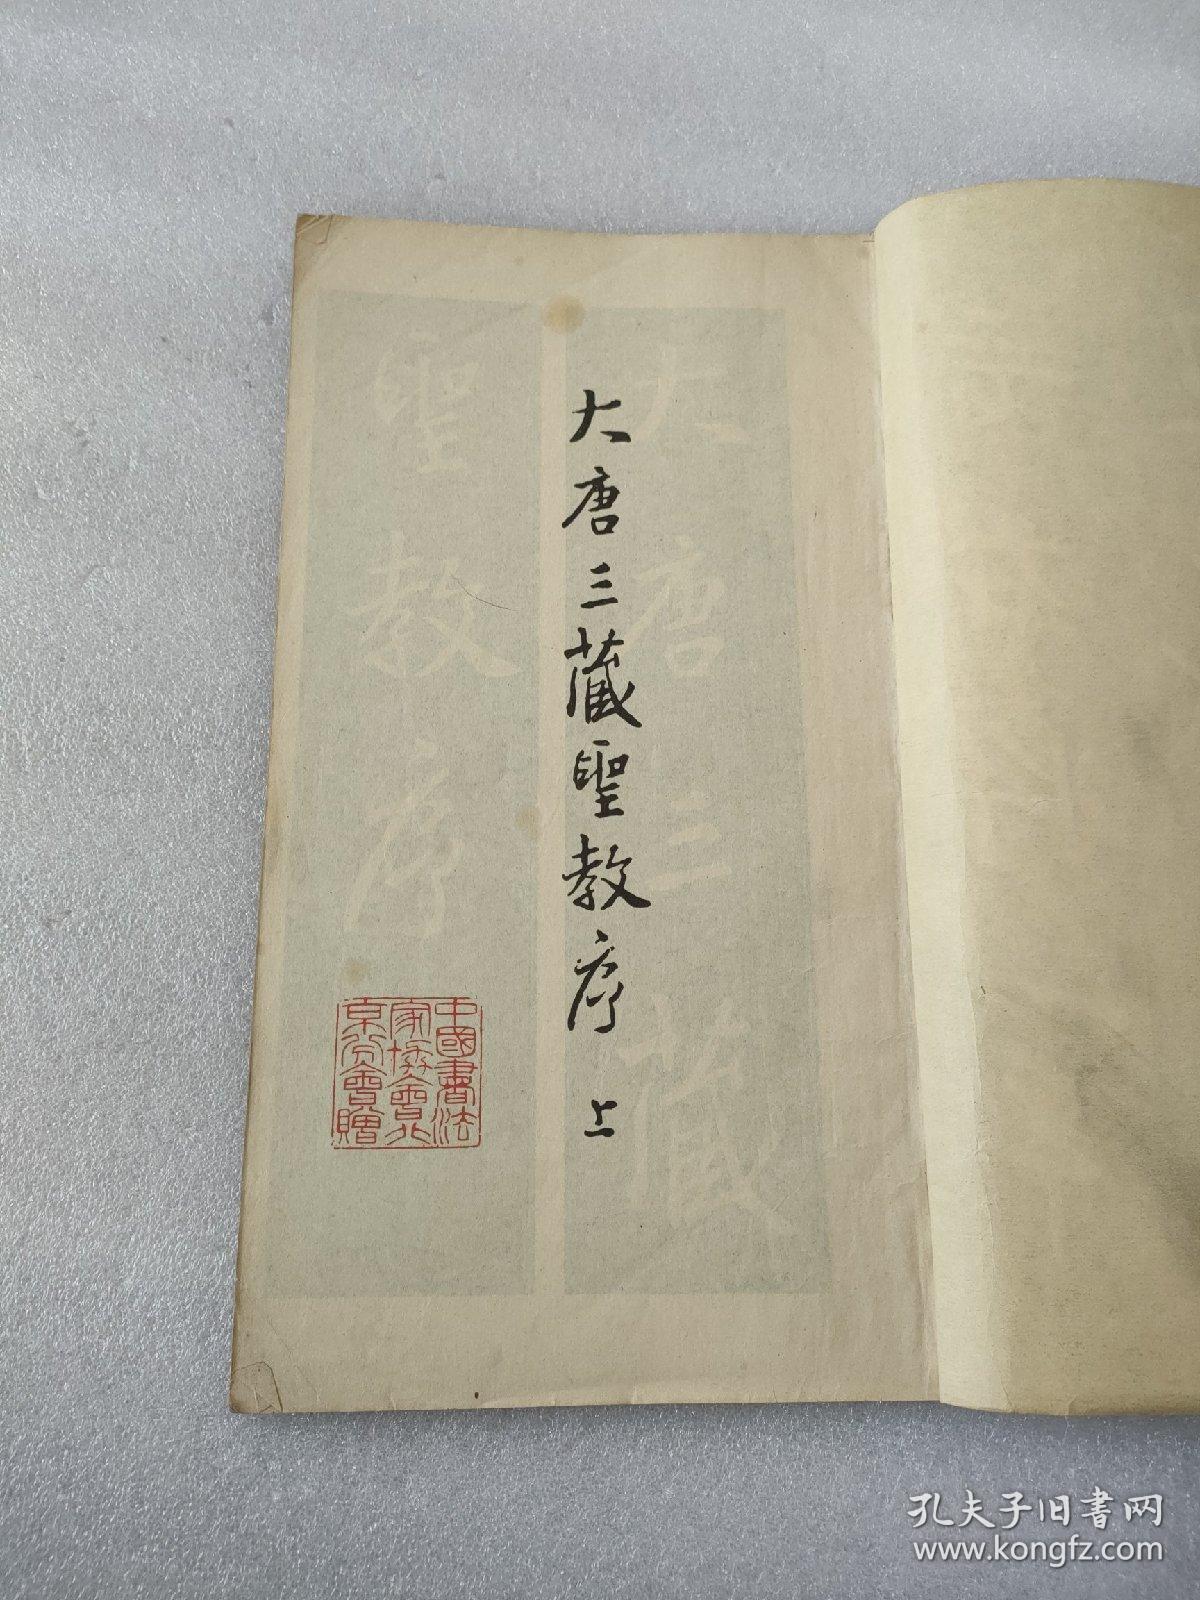 大唐三藏聖教序 上
大唐三藏
聖教序
中國書法
家協會北
京分會贈
孔夫子旧书网
www.kongfz.com